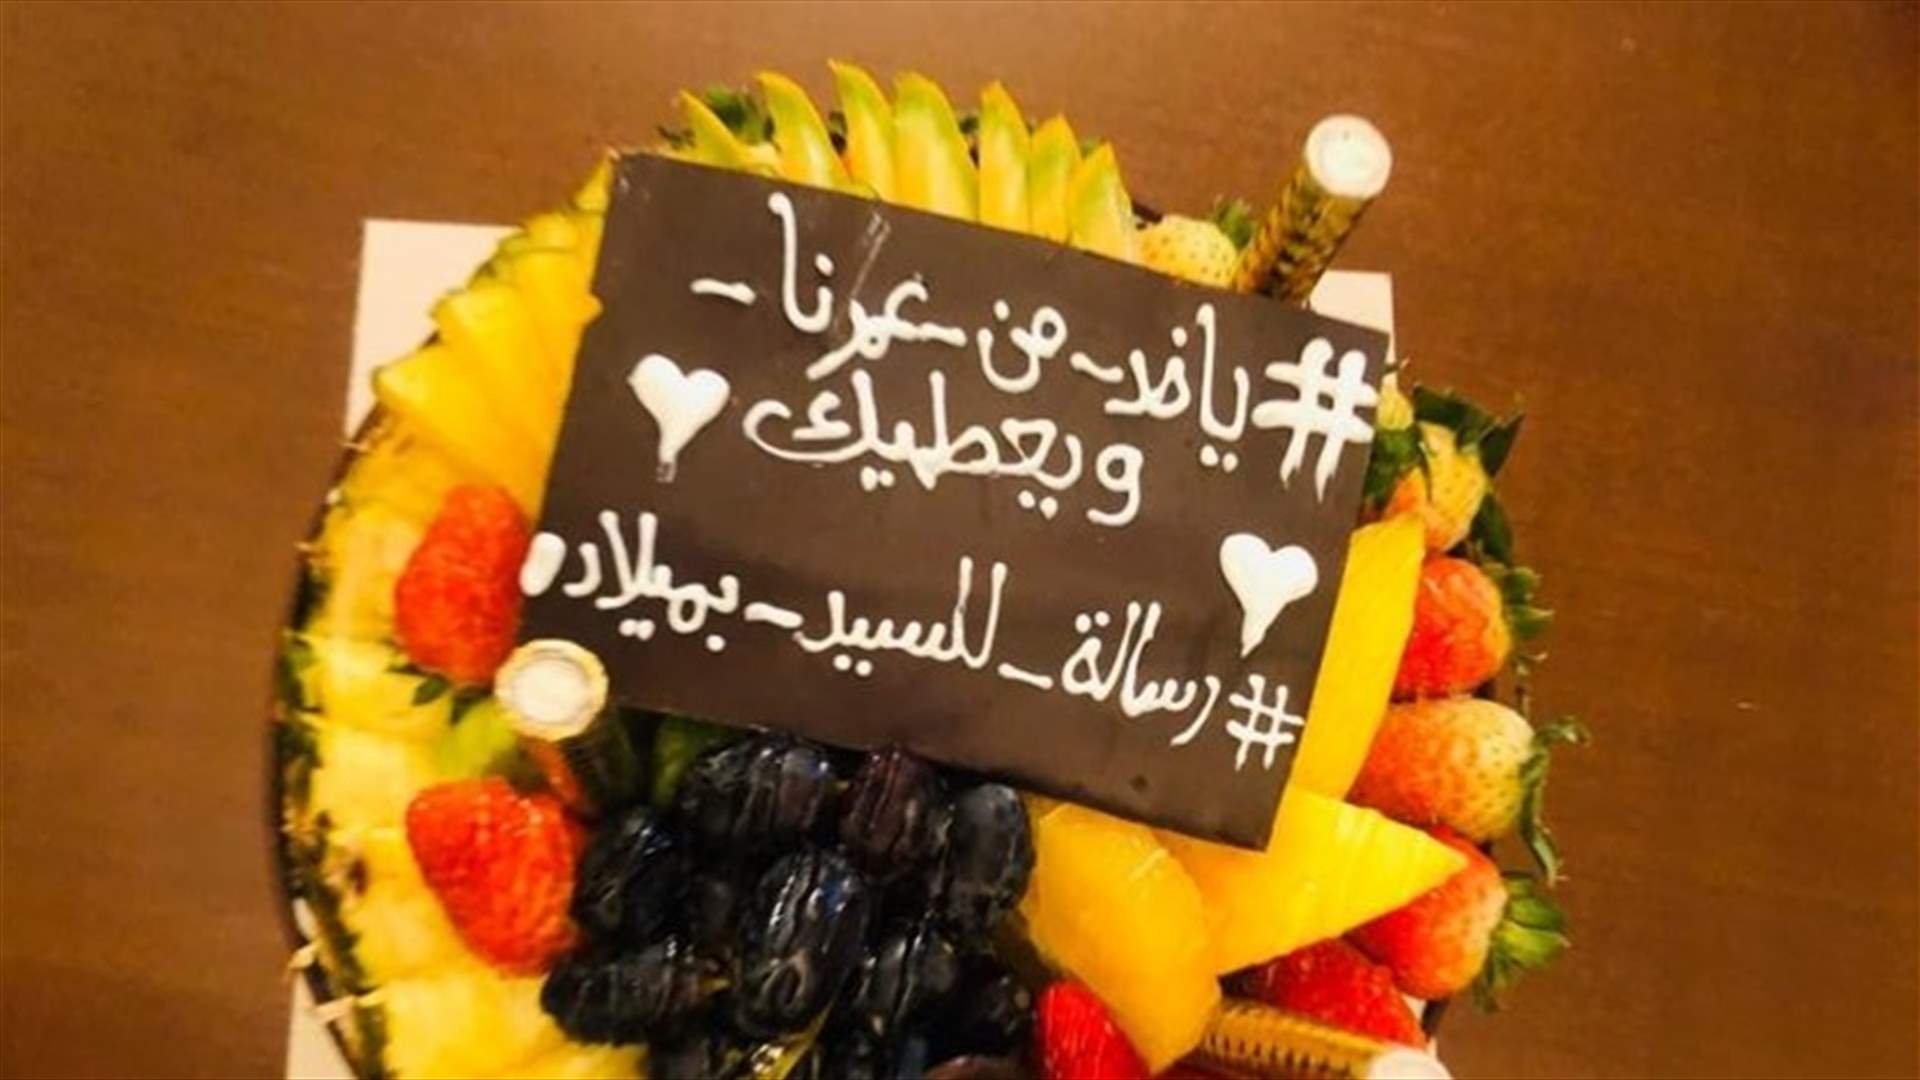 #ياخد_من_عمرنا_
ويعطيك
#رسالة_للسيد_بميلاده